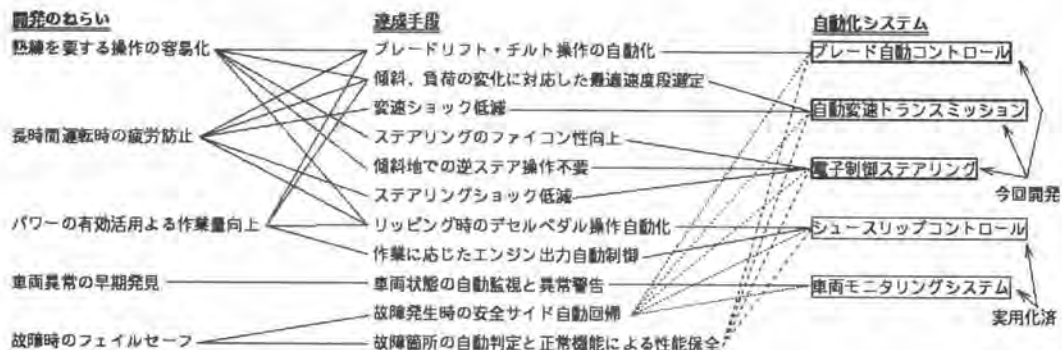 開発のねらい
熟練を要する操作の容易化
長時間運転時の疲労防止
パワーの有効活用よる作業量向上
車両異常の早期発見
故障時のフェイルセーフ
達成手段
ブレードリフト・チルト操作の自動化
傾斜、負荷の変化に対応した最適速度段選定
変速ショック低減
ステアリングのファイコン性向上
傾斜地での逆ステア操作不要
ステアリングショック低減
リッピング時のデセルペダル操作自動化
作業に応じたエンジン出力自動制御
車両状態の自動監視と異常警告
故障発生時の安全サイド自動回帰
故障箇所の自動判定と正常機能による性能保全
自動化システム
ブレード自動コントロール
自動変速トランスミッション
電子制御ステアリング
今回開発
シュースリップコントロール
車両モニタリングシステム
実用化済